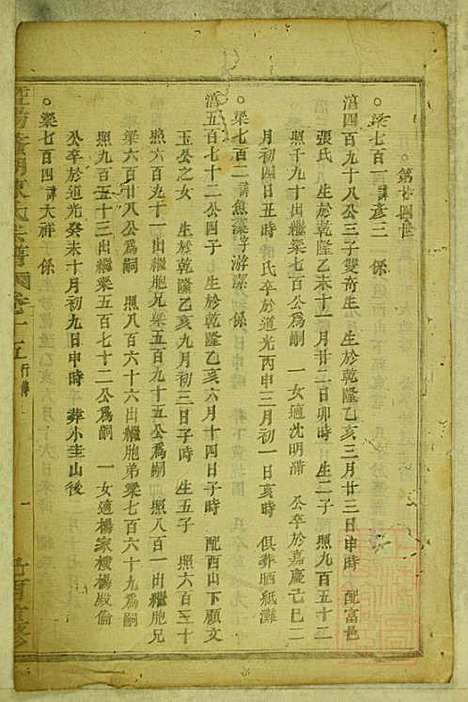 ○第廿四世
○梁七百一 諱彥二 係
淯四百九十八公子三子雙奇生 生於乾隆乙亥三月廿三日申時 配富邑
張氏 生於乾隆乙未十一月廿二日卯時 生二子 照九百五十二
照千九十出繼梁七百公爲嗣 一女適沈明浩 公卒於嘉慶己巳二
月初四日丑時 氏卒於道光丙申三月初一日亥時 俱葬晒紙灘
○梁七百二 諱魚藻 字游潔 係
淯五百七十二公四子 生於乾隆乙亥六月十四日子時 配西山下顧文
玉公之女 生於乾隆乙亥九月初三日子時 生五子 照六百三十
照六百九十一出繼胞兄梁五百九十五公爲嗣 照八百一出繼胞兄
梁六百廿八公爲嗣 照八百六十六出繼胞弟梁七百六十九爲嗣
照九百五十三出繼百七十二公爲嗣 一女適楊家樓楊
公卒於道光癸未十月初九日申時 葬外圭山後
○梁七百四 諱大祥 係
十五 行傳
一